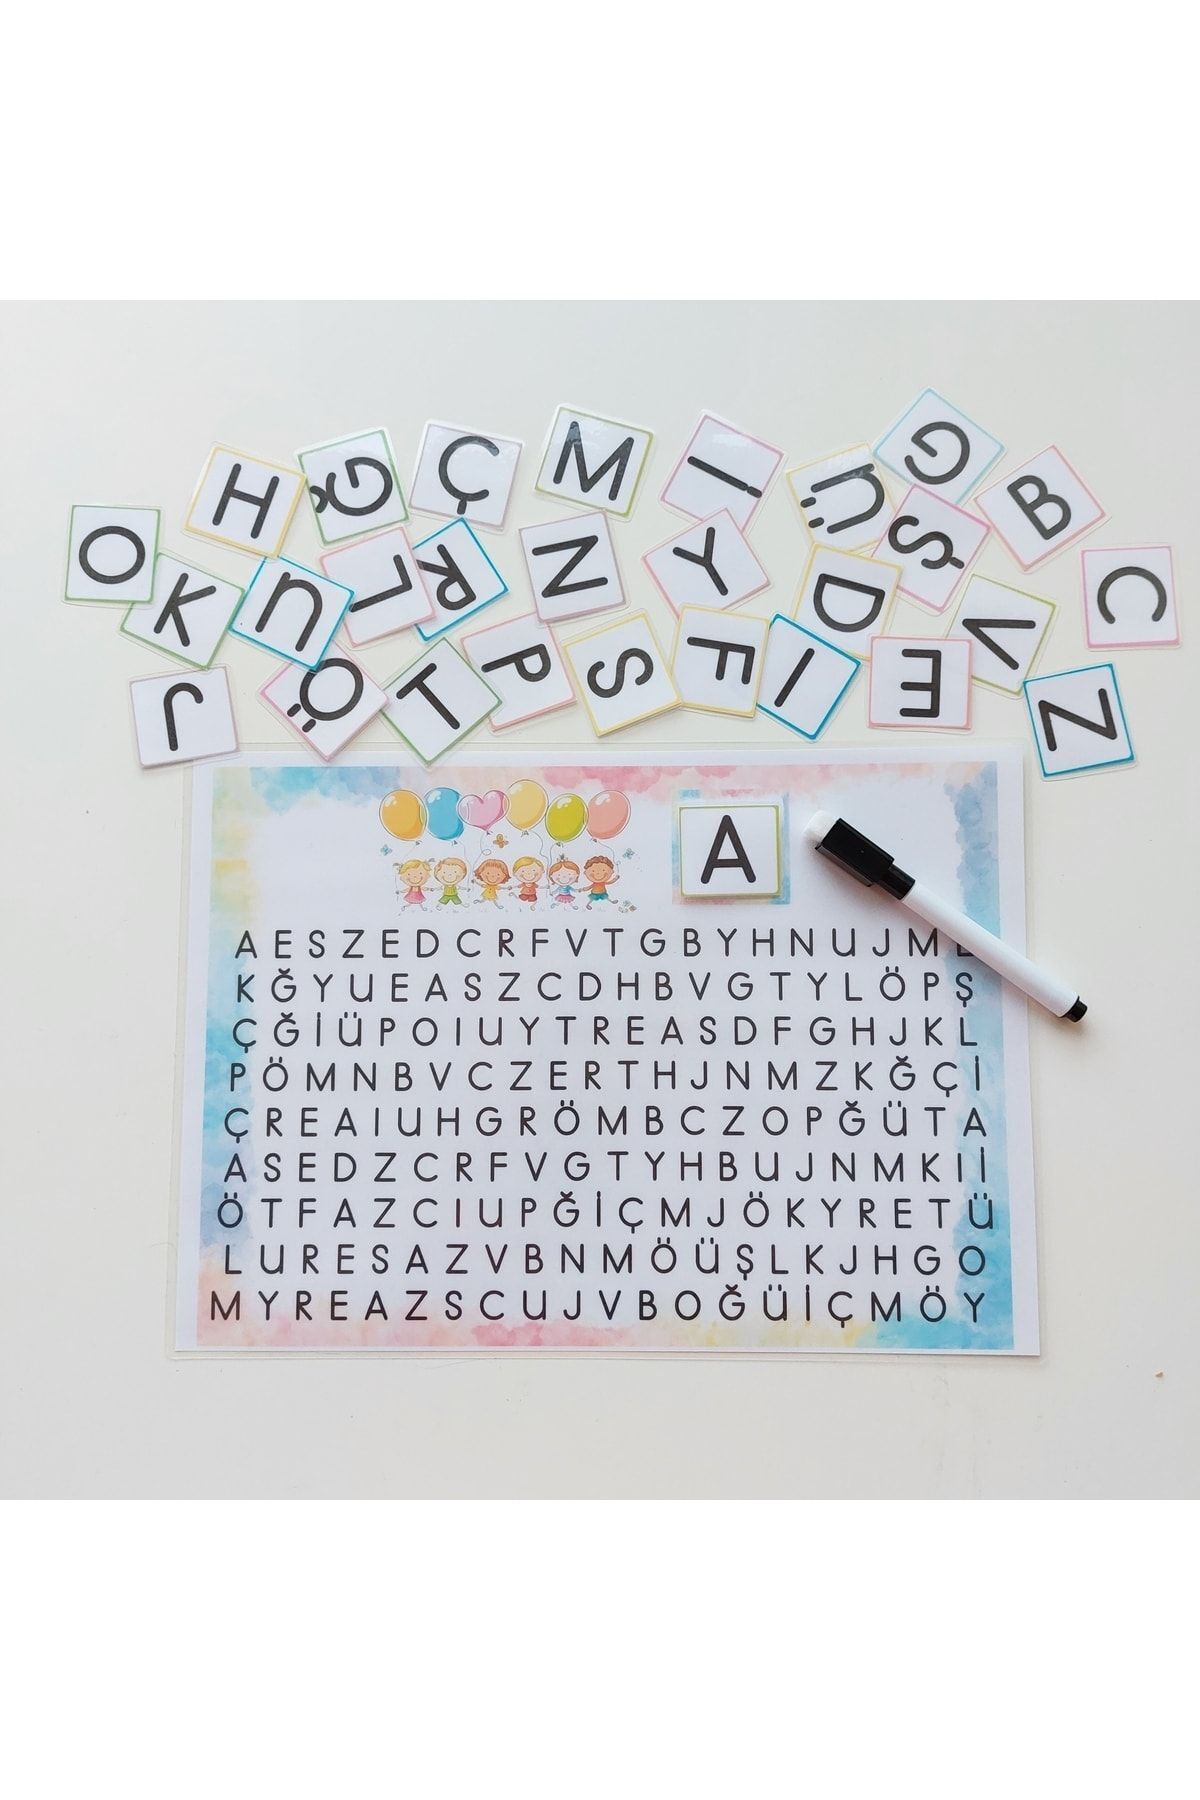 H Ğ Ç M İ Ü G B
O K U L R N Y D Ş V C
J Ö T P S F I E Z
A
A E S Z E D C R F V T G B Y H N U J M
K Ğ Y U E A S Z C D H B V G T Y L Ö P Ş
Ç Ğ İ Ü P O I U Y T R E A S D F G H J K L
P Ö M N B V C Z E R T H J N M Z K Ğ Ç İ
Ç R E A I U H G R Ö M B C Z O P Ğ Ü T A
A S E D Z C R F V G T Y H B U J N M K I İ
Ö T F A Z C I U P Ğ İ Ç M J Ö K Y R E T Ü
L U R E S A Z V B N M Ö Ü Ş L K J H G O
M Y R E A Z S C U J V B O Ğ Ü İ Ç M Ö Y